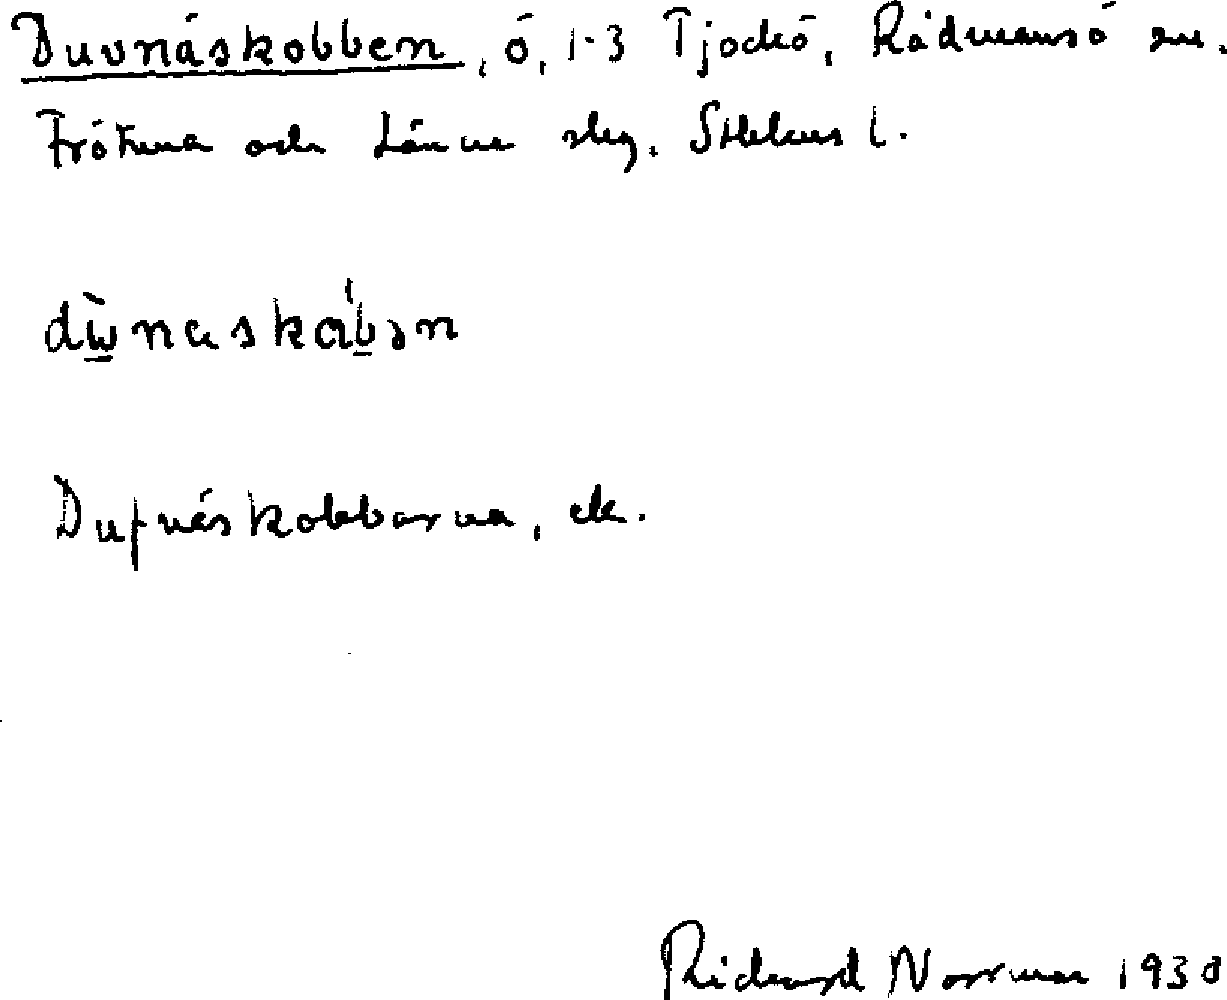 Duvnäskobben, ö, 1-3 Tjockö, Rådmansö sn.
Frötuna och Länna slg. Sthlms l.
dὼnaskábən
Dufnäskobbarna, ek.
Rickard Norrman 1930